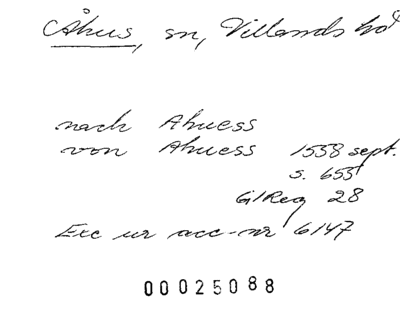 Åhus, sn, Villands hd
nach Ahuess
von Ahuess 1558 sept.
s. 655
GlReg 28
Exc ur acc-nr 6147
00025088